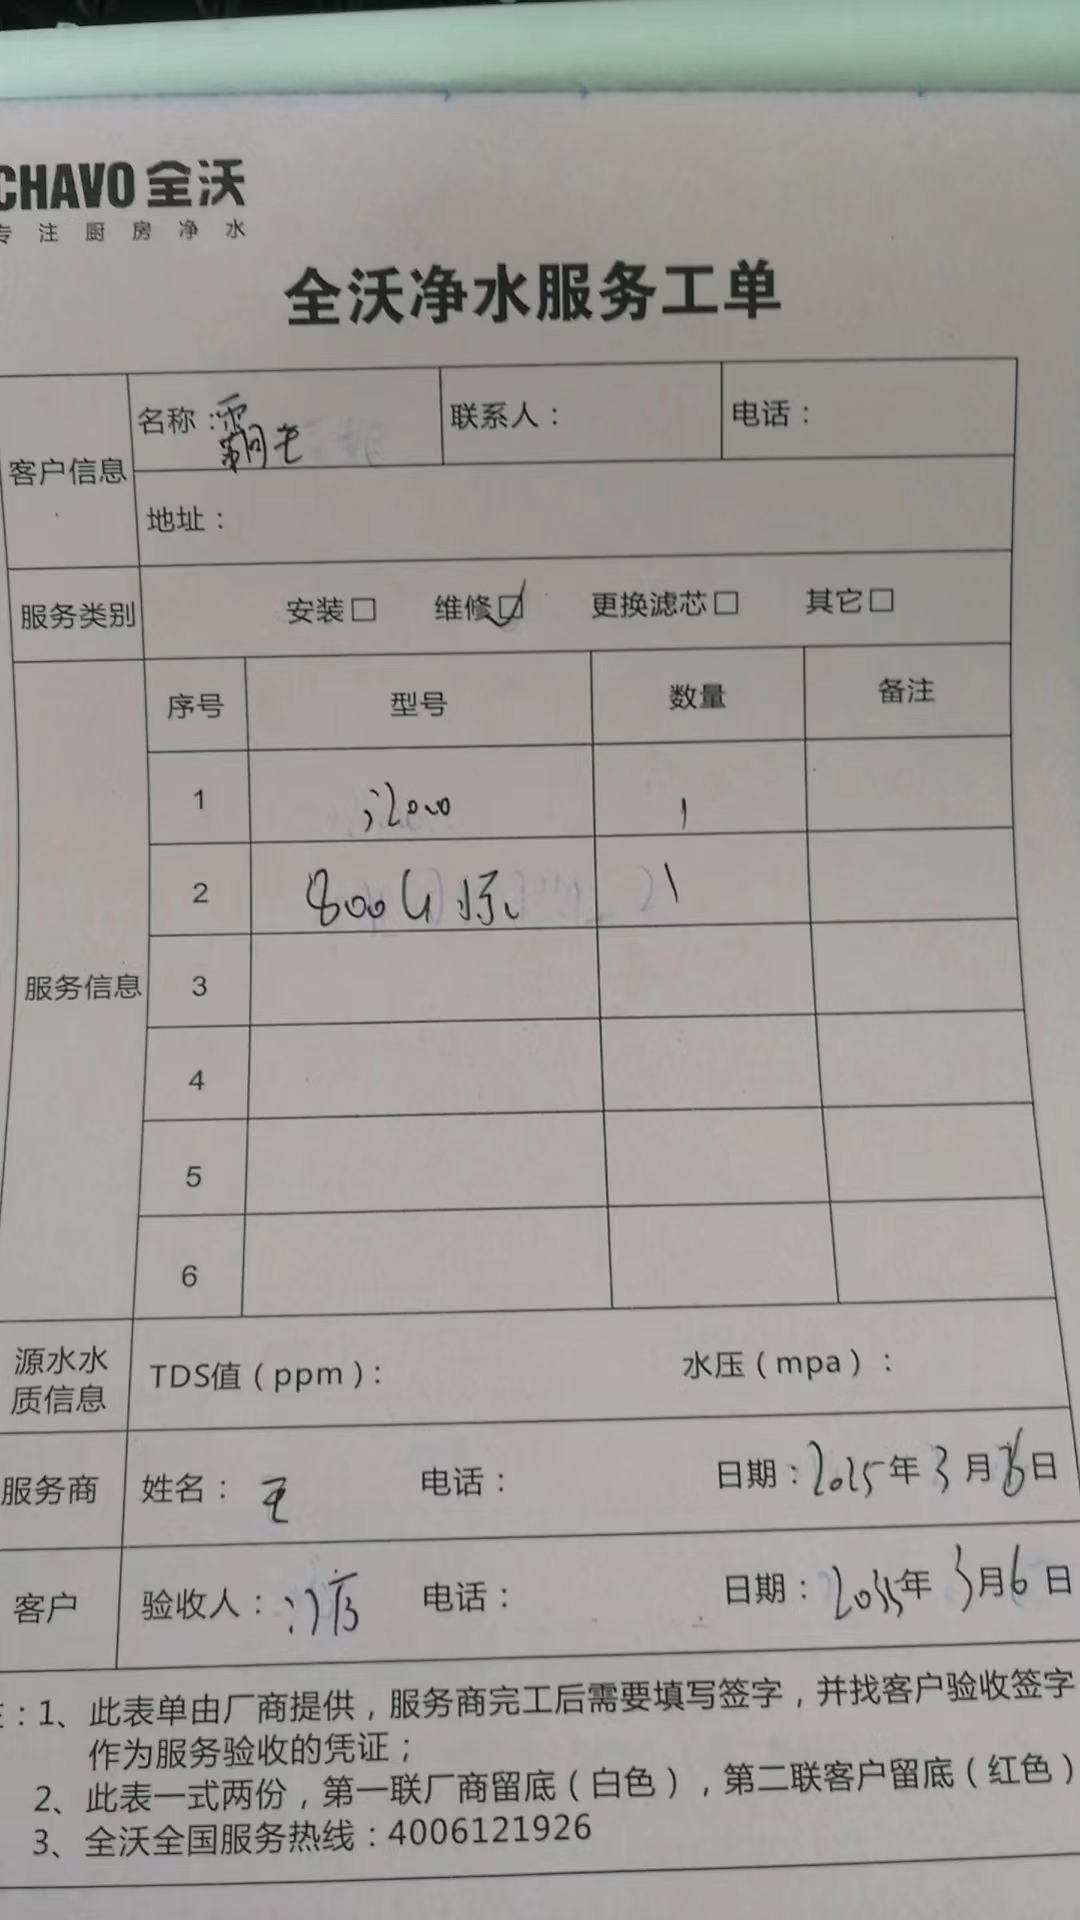 CHAVO 全沃
专注厨房净水
全沃净水服务工单
客户信息 名称： 联系人： 电话：
地址：
服务类别 安装□ 维修☑ 更换滤芯□ 其它□
服务信息 序号 型号 数量 备注
1 1
2 800G 1
3
4
5
6
源水水质信息 TDS值（ppm）： 水压（mpa）：
服务商 姓名：王 电话： 日期：2025年3月6日
客户 验收人： 电话： 日期：2035年3月6日
注：1、此表单由厂商提供，服务商完工后需要填写签字，并找客户验收签字
作为服务验收的凭证；
2、此表一式两份，第一联厂商留底（白色），第二联客户留底（红色）
3、全沃全国服务热线：4006121926